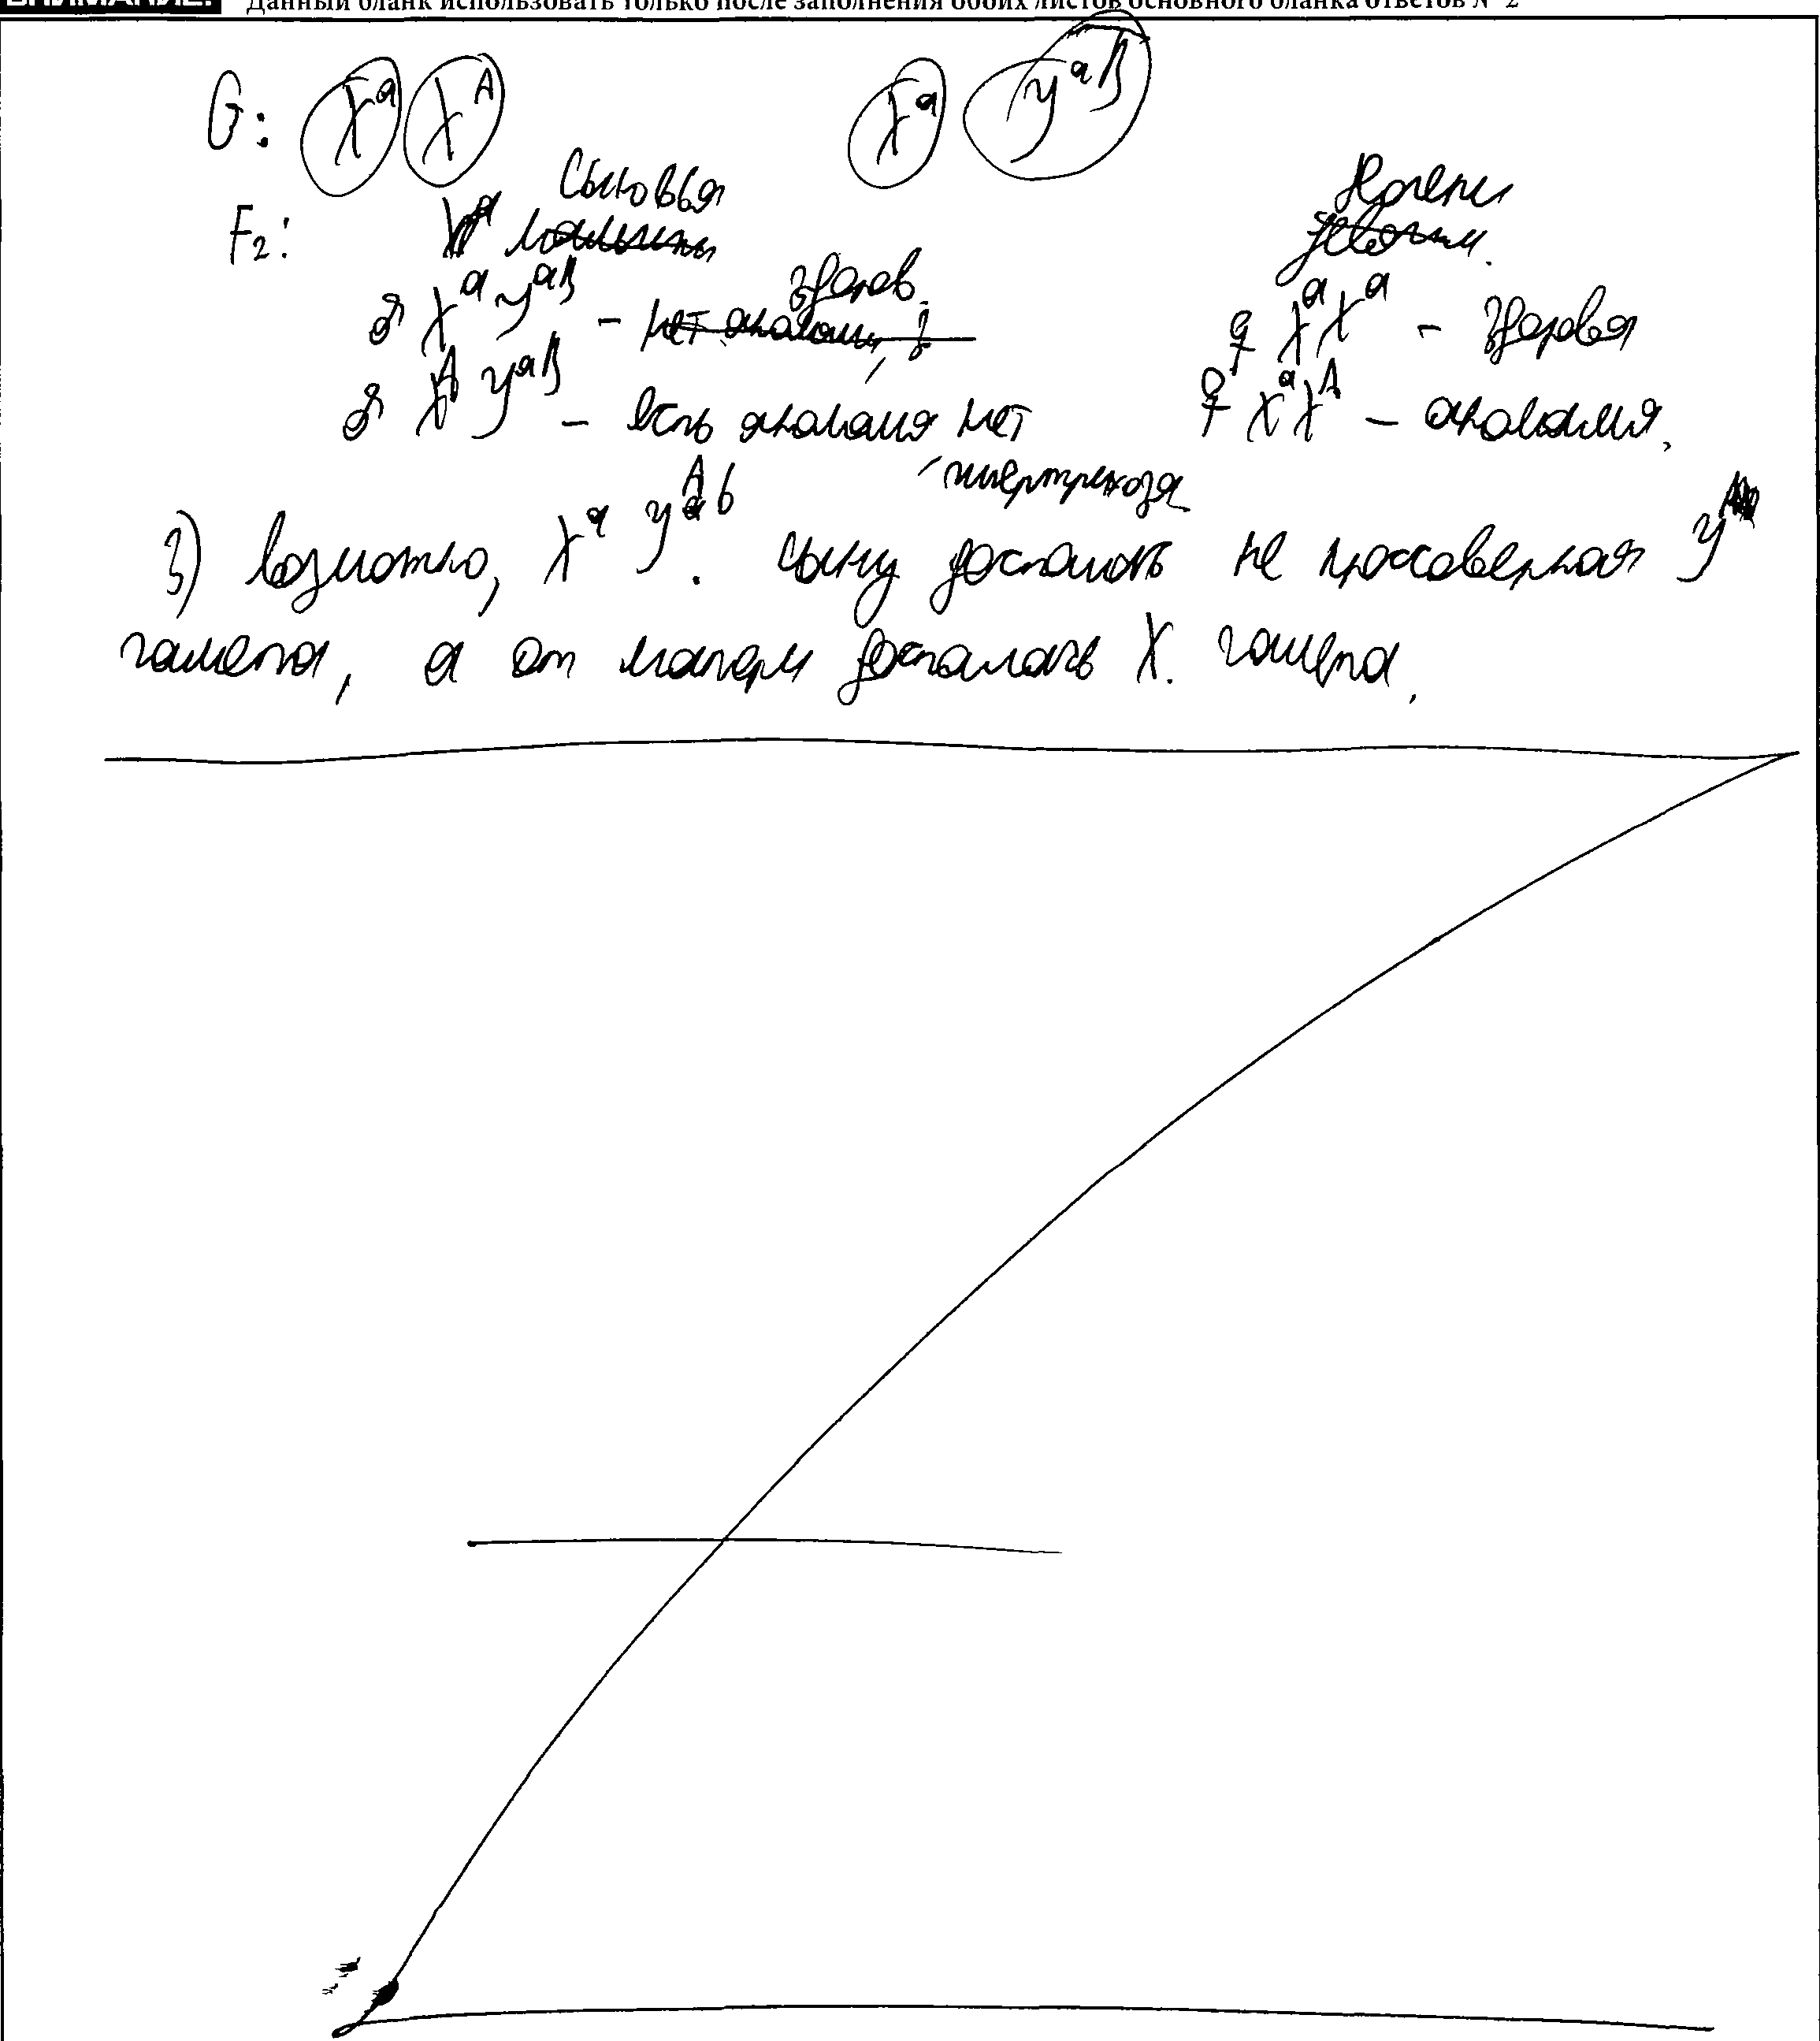 ВНИМАНИЕ! Данный бланк использовать только после заполнения обоих листов основного бланка ответов № 2
G: Xᵃ Xᴬ Xᵃ Yᵃᴮ
F₂: Сыновья Дочери
♂ Xᵃ Yᵃᴮ – здоров. ♀ XᵃXᵃ – здоровая
♂ Xᴬ Yᵃᴮ – есть аномалия нет гипертрихоза ♀ XᵃXᴬ – аномалия.
3) возможно, Xᵃ Yᴬᵇ. сыну досталась не кроссоверная Y
гамета, а от матери досталась X. гамета.